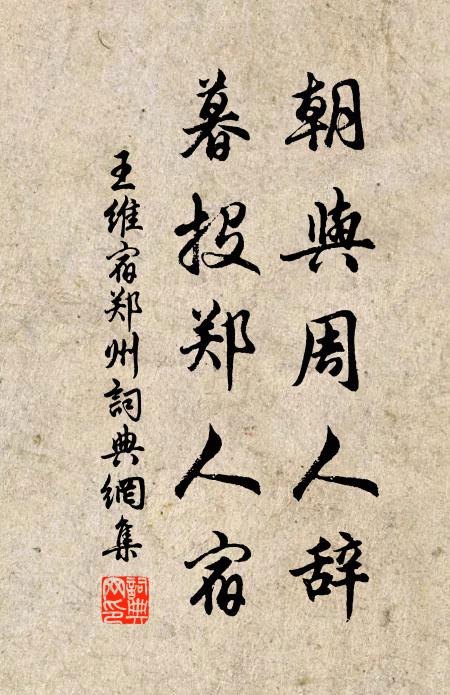 朝與周人辞
暮投郑人宿
王维宿郑州詞典網集
詞典
网印